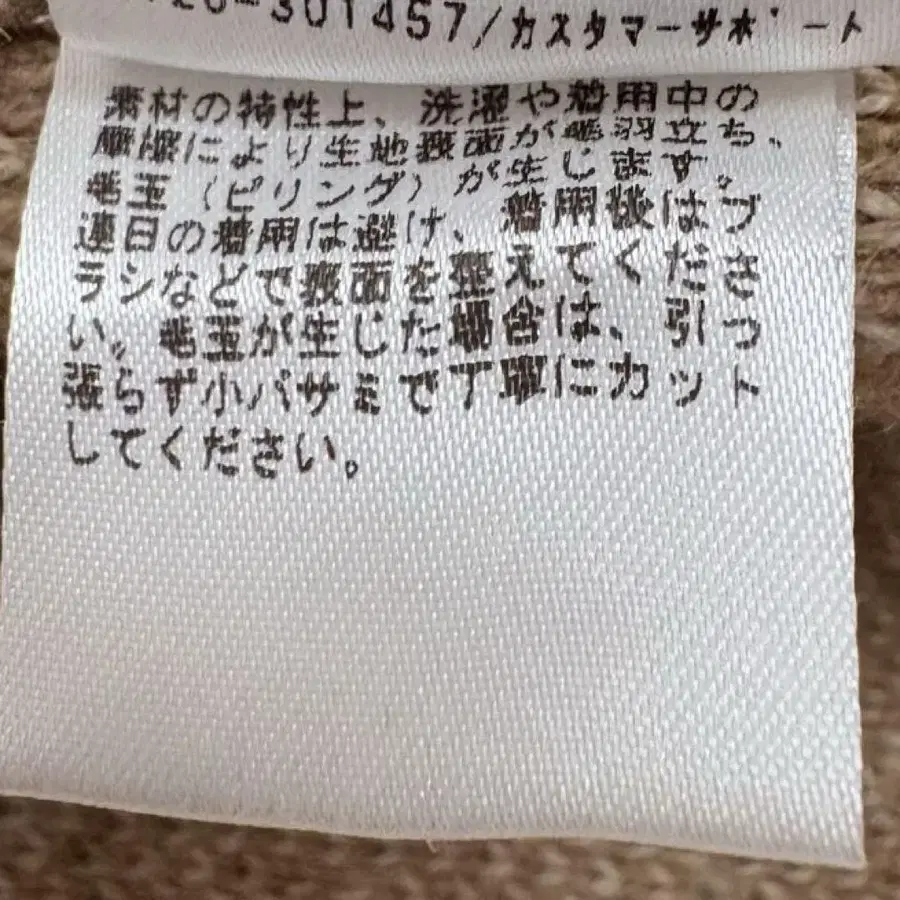 120-301457/カスタマーサポート
素材の特性上、洗濯や着用中の
摩擦により生地表面が毛羽立ち、
毛玉(ピリング)が生じます。
連日の着用は避け、着用後はブ
ラシなどで表面を整えてくださ
い。毛玉が生じた場合は、引っ
張らず小バサミで丁寧にカット
してください。